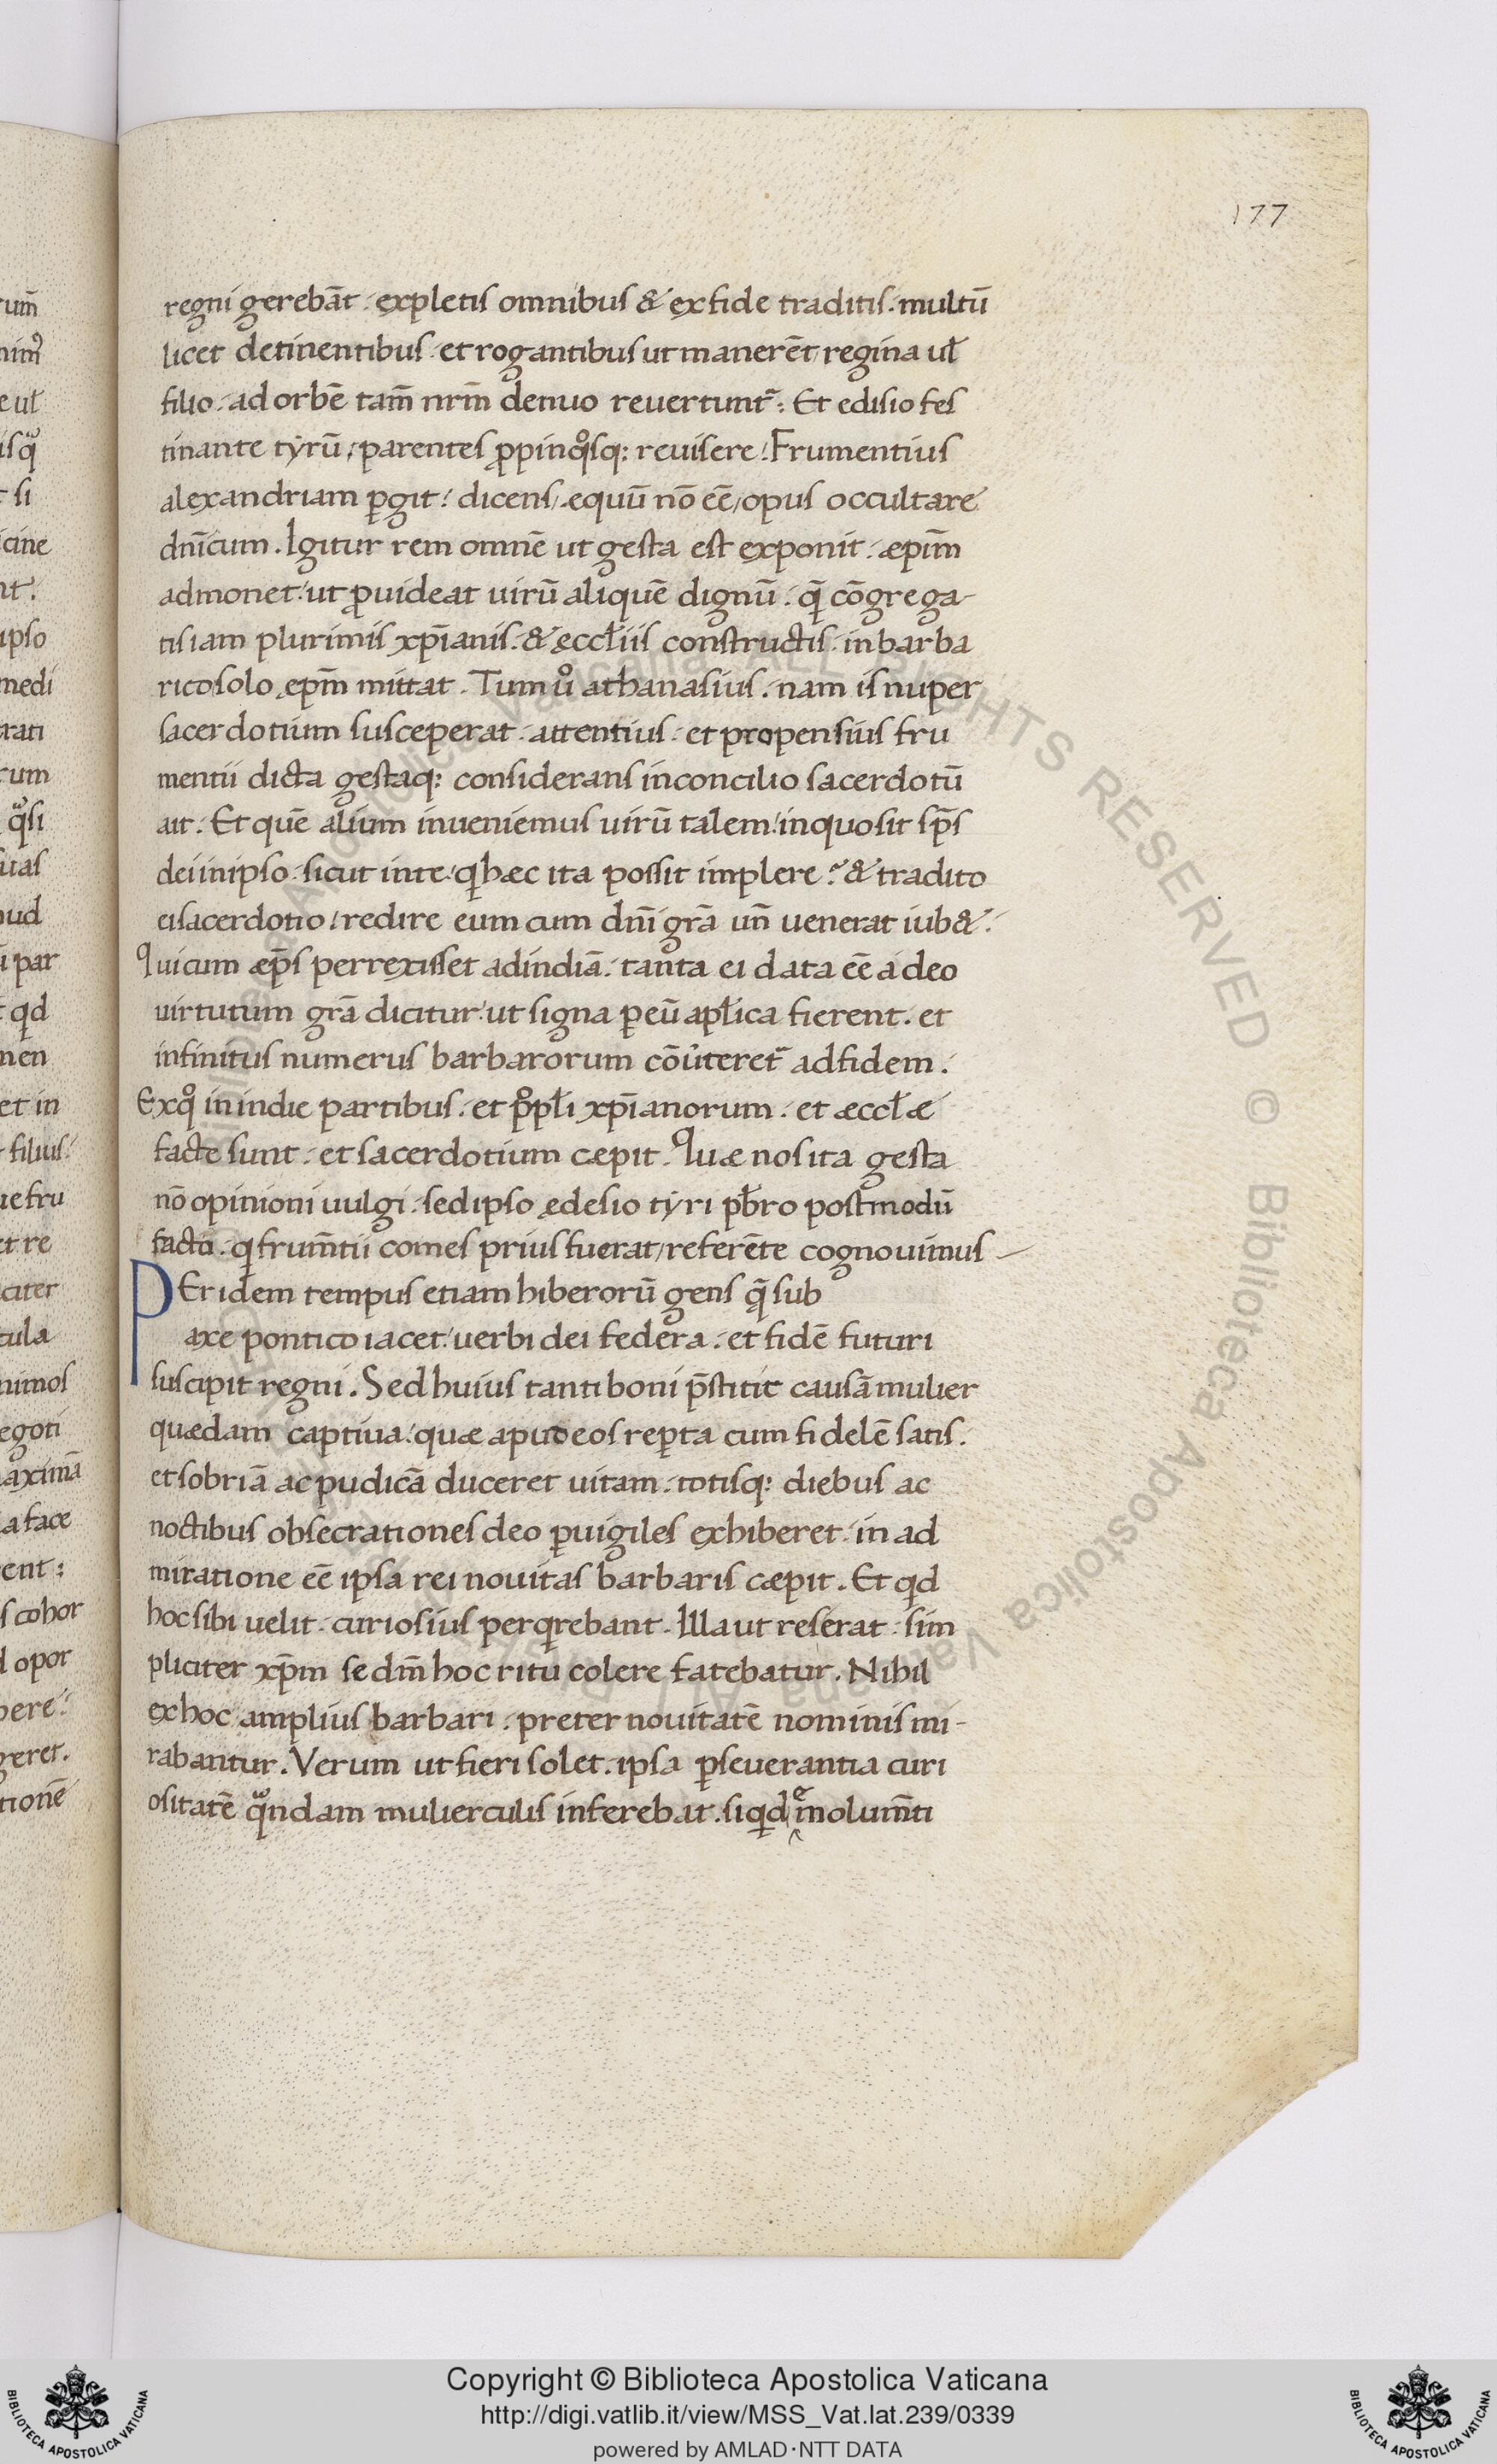 177
regni gerebāt. expletis omnibus & ex fide traditis. multū
licet detinentibus. et rogantibus ut manerēt regina ul̄
filio. ad orbē tam̄ nrm̄ denuo revertunt᷑: Et edisio fes
tinante tyrū, parentes ꝓpinq̊sq: revisere. Frumentius
alexandriam ꝑgit. dicens, equū nō eē, opus occultare
dnīcum. Igitur rem omnē ut gesta est exponit. æpīm
admonet. ut ꝓvideat uirū aliquē dignū. q̄ cōgrega-
tis iam plurimis xp̄ianis. & æccl̄iis constructis. in barba
rico solo ep̄m mittat. Tum ů athanasius. nam is nuper
sacerdotium susceperat. attentius. et propensius fru
mentii dicta gestaq: considerans in concilio sacerdotū
ait. Et quē alium inveniemus uirū talem. in quo sit sp̄s
dei in ipso. sicut in te. q hæc ita possit implere? & tradito
ei sacerdotio. redire eum cum dnī grā un̄ uenerat iub&.
Qui cum æp̄s perrexisset ad indiā. tanta ei data eē a deo
uirtutum grā dicitur. ut signa ꝑ eū apl̄ica fierent. et
infinitus numerus barbarorum cōu̓teret᷑ ad fidem.
Ex q̊ in indie partibus. et p̊pl̄i xp̄ianorum. et æccl̄æ
facte sunt. et sacerdotium cæpit. Quæ nos ita gesta
nō opinioni uulgi. sed ipso ędesio tyri pb̄ro postmodū
facto. q frum̄tii comes prius fuerat, referēte cognouimus
PEr idem tempus etiam hiberorū gens q̄ sub
axe pontico iacet. uerbi dei federa. et fidē futuri
suscipit regni. Sed huius tanti boni p̄stitit causā mulier
quædam captiua. quæ apud eos reꝑta cum fidelē satis.
et sobriā ac pudicā duceret uitam. totisq: diebus ac
noctibus obsecrationes deo ꝑuigiles exhiberet. in ad
miratione eē ipsa rei nouitas barbaris cæpit. Et qd
hoc sibi uelit. curiosius perqrebant. Illa ut res erat. sim
pliciter xp̄m se dm̄ hoc ritu colere fatebatur. Nihil
ex hoc amplius barbari. preter nouitatē nominis mi-
rabantur. Verum ut fieri solet. ipsa ꝑseuerantia curi
ositatē qͣndam mulierculis inferebat. siqd emolum̄ti
Copyright © Biblioteca Apostolica Vaticana
http://digi.vatlib.it/view/MSS_Vat.lat.239/0339
powered by AMLAD·NTT DATA